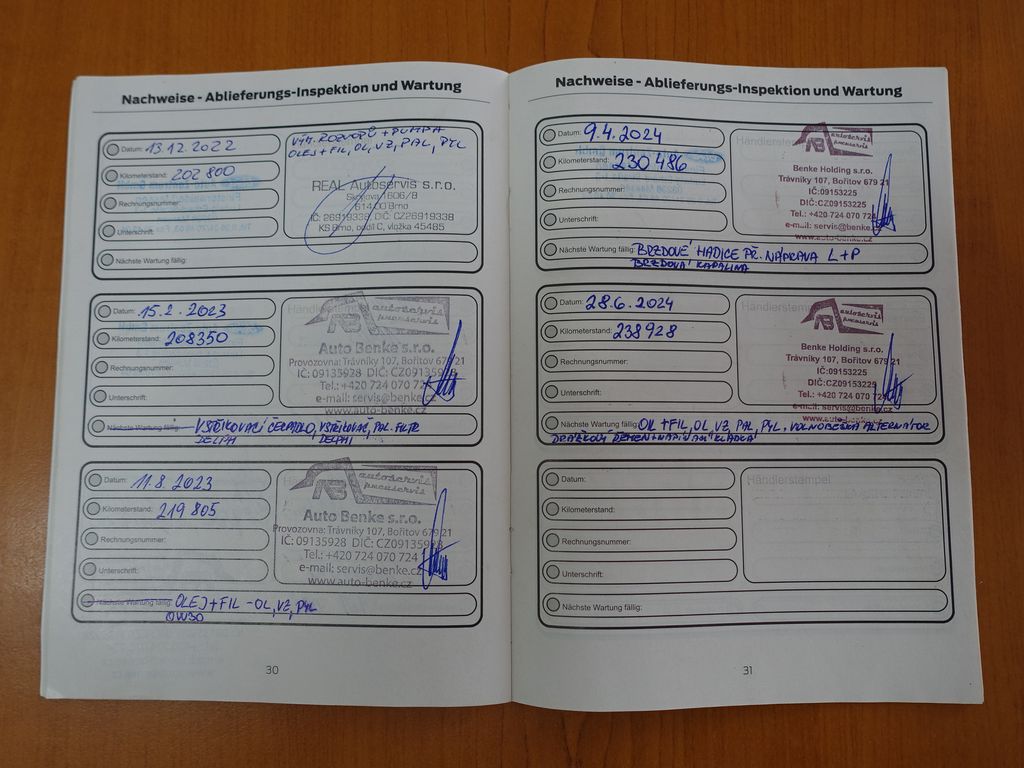 Nachweise - Ablieferungs-Inspektion und Wartung
Datum: 13.12.2022
Kilometerstand: 202 800
Rechnungsnummer:
Unterschrift:
Nächste Wartung fällig:
VÝM. ROZVODŮ + PUMPA
OLEJ + FIL, OL, VZ, PAL, PYL
REAL Autoservis s.r.o.
1606/8
614 00 Brno
IČ: 26919338 DIČ: CZ26919338
KS Brno, oddíl C, vložka 45485
Datum: 15.2.2023
Kilometerstand: 208350
Rechnungsnummer:
Unterschrift:
Nächste Wartung fällig: VSTŘIKOVACÍ ČERPADLO, VSTŘIKOVAČ, PAL. FILTR
DELPHI DELPHI
Händlerstempel
AB autoservis
pneuservis
Auto Benke s.r.o.
Provozovna: Trávníky 107, Bořitov 679 21
IČ: 09135928 DIČ: CZ09135928
Tel.: +420 724 070 724
e-mail: servis@benke.cz
www.auto-benke.cz
Datum: 11.8.2023
Kilometerstand: 219 805
Rechnungsnummer:
Unterschrift:
Nächste Wartung fällig: OLEJ + FIL - OL, VZ, PYL
0W30
AB autoservis
pneuservis
Auto Benke s.r.o.
Provozovna: Trávníky 107, Bořitov 679 21
IČ: 09135928 DIČ: CZ09135928
Tel.: +420 724 070 724
e-mail: servis@benke.cz
www.auto-benke.cz
30
Nachweise - Ablieferungs-Inspektion und Wartung
Datum: 9.4.2024
Kilometerstand: 230 486
Rechnungsnummer:
Unterschrift:
Nächste Wartung fällig: BRZDOVÉ HADICE PŘ. NÁPRAVA L+P
BRZDOVÁ KAPALINA
Händlerstempel
AB autoservis
pneuservis
Benke Holding s.r.o.
Trávníky 107, Bořitov 679 21
IČ:09153225
DIČ:CZ09153225
Tel.: +420 724 070 724
e-mail: servis@benke.cz
Datum: 28.6.2024
Kilometerstand: 238928
Rechnungsnummer:
Unterschrift:
Nächste Wartung fällig: OL + FIL, OL, VZ, PAL, PYL, VOLNOBĚŽKA ALTERNÁTOR
DRÁŽKOVÝ ŘEMEN + NAPÍNACÍ KLADKA
Händlerstempel
AB autoservis
pneuservis
Benke Holding s.r.o.
Trávníky 107, Bořitov 679 21
IČ:09153225
DIČ:CZ09153225
Tel.: +420 724 070 724
e-mail: servis@benke.cz
Datum:
Kilometerstand:
Rechnungsnummer:
Unterschrift:
Nächste Wartung fällig:
Händlerstempel
31